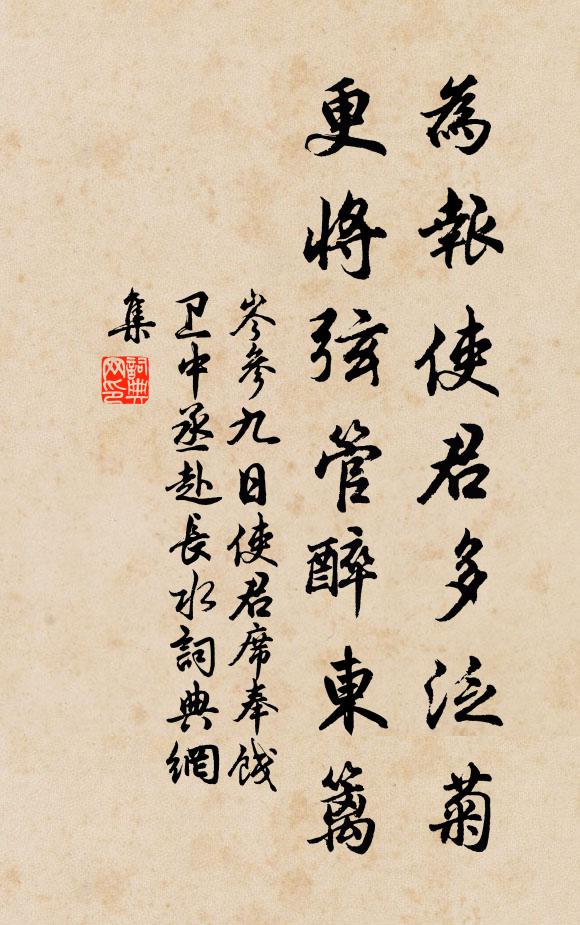 為報使君多泛菊
更將弦管醉東籬
岑參九日使君席奉餞
卫中丞赴長水詞典網
集
詞典
网印